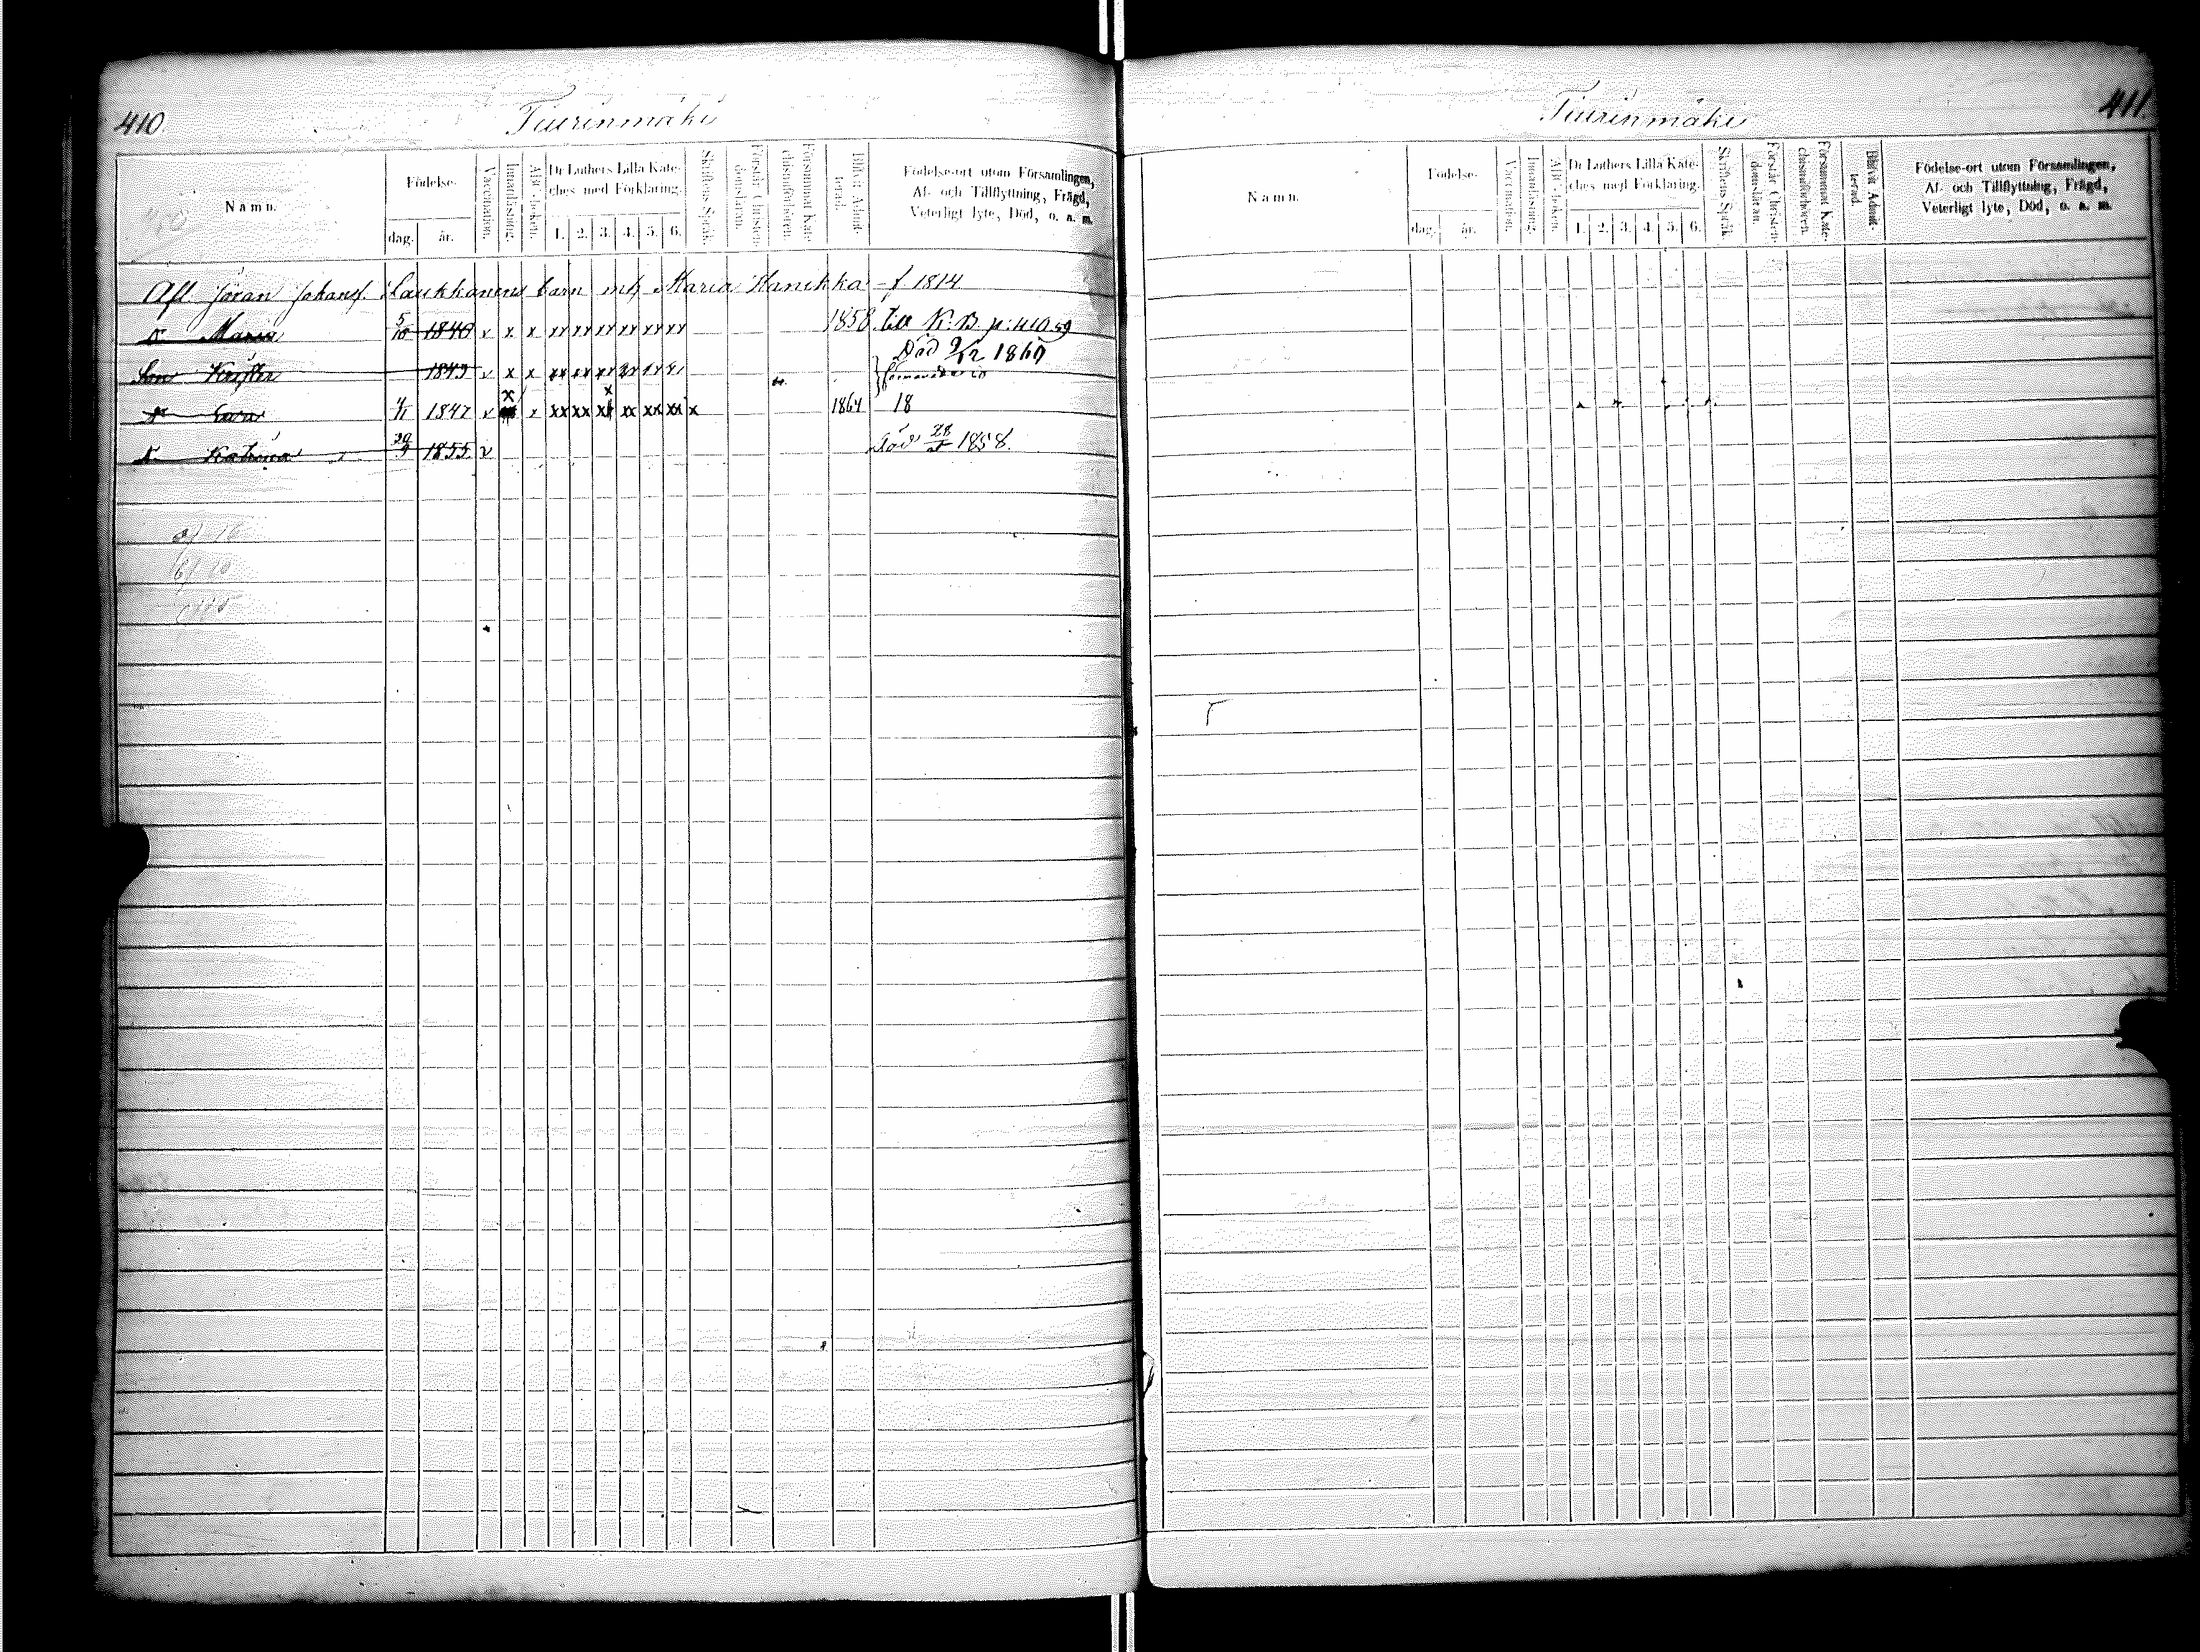 410
Tiurinmäki
Namn.
Födelse-
dag.
år.
Vaccination.
Innanläsning.
ABC-boken.
Dr Luthers Lilla Kate-
ches med Förklaring.
1. 2. 3. 4. 5. 6.
Skriftens Språk.
Förstår Christen-
domsläran.
Försummat Kate-
chismiförhören.
Blifvit Admit-
terad.
Födelse-ort utom Församlingen,
Af- och Tillflyttning, Frägd,
Veterligt lyte, Död, o. a. m.
Afl Jöran Johansf. Laukkanens barn mf Maria Hanikka f. 1814
D. Maria 5/10 1840 v x x xx xx xx xx xx xx 1858 till K. B. p: 410
Död 9/12 1860
Son Krister 1843 v x x xx xx xx xx xx
D. Sara 4/1 1847 v x x xx xx xx xx xx xx x 1864 18
D. Katrina 29/9 1855 v död 28/5 1858.
411.
Tiurinmäki
Namn.
Födelse-
dag.
år.
Vaccination.
Innanläsning.
ABC-boken.
Dr Luthers Lilla Kate-
ches med Förklaring.
1. 2. 3. 4. 5. 6.
Skriftens Språk.
Förstår Christen-
domsläran.
Försummat Kate-
chismiförhören.
Blifvit Admit-
terad.
Födelse-ort utom Församlingen,
Af- och Tillflyttning, Frägd,
Veterligt lyte, Död, o. a. m.